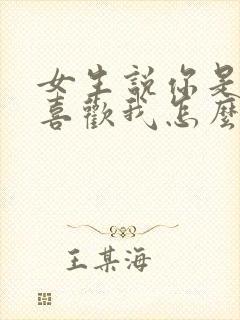 女生說你是
喜歡我怎麼
王某海